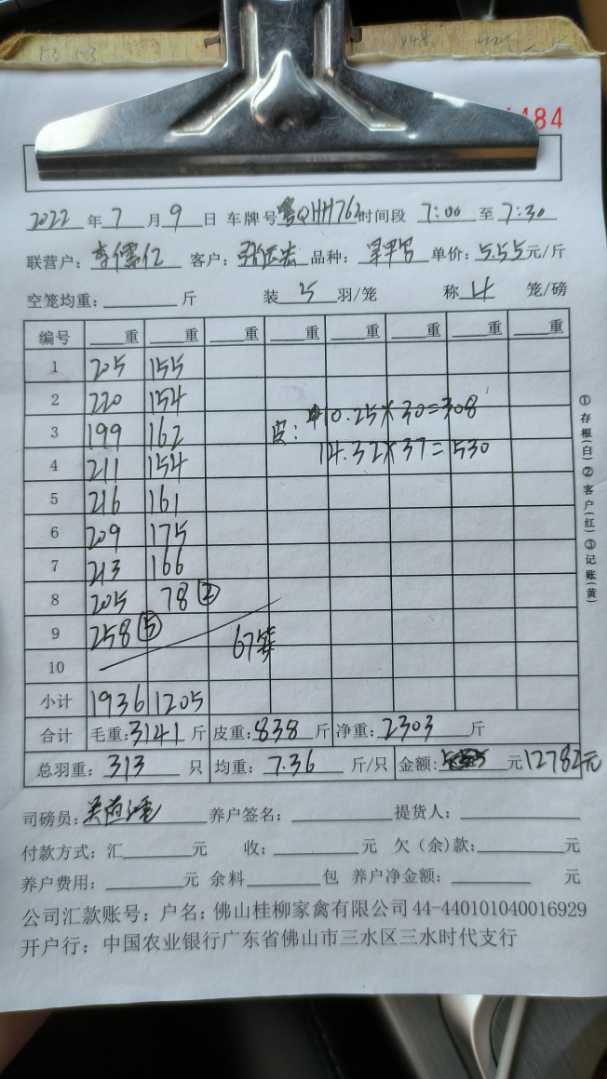 484
2022年7月9日 车牌号粤QHH762时间段 7:00至7:30
联营户: 客户: 品种: 单价:5.55元/斤
空笼均重: 斤 装5羽/笼 称4笼/磅
编号 重 重 重 重 重 重 重 重
1 205 155
2 220 154
10.25×30=308
3 199 162
皮:
14.32×37=530
4 211 154
5 216 161
6 209 175
7 213 166
8 205 78②
9 258⑤
67笼
10
小计 1936 1205
合计 毛重:3141斤 皮重:838斤 净重:2303斤
总羽重:313只 均重:7.36斤/只 金额: 元12782元
司磅员: 养户签名: 提货人:
付款方式:汇 元 收: 元 欠(余)款: 元
养户费用: 元 余料 包 养户净金额: 元
公司汇款账号:户名:佛山桂柳家禽有限公司44-440101040016929
开户行:中国农业银行广东省佛山市三水区三水时代支行
①存根(白)②客户(红)③记账(黄)